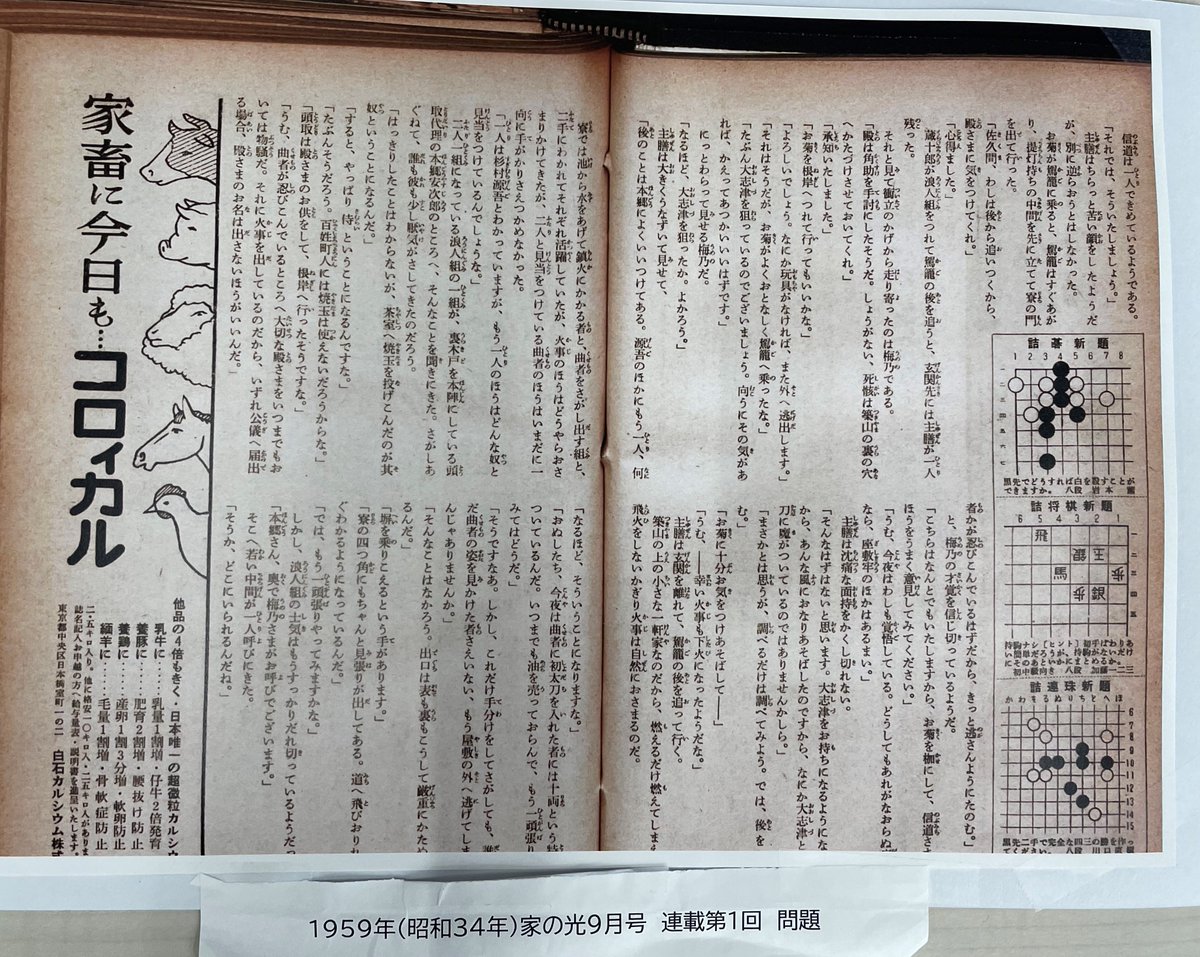 信道は一人できめているようである。
「それでは、そういたしましょう。」
主膳はちらっと苦い顔をしたようだ
が、別に逆らおうとはしなかった。
お菊が駕籠に乗ると、駕籠はすぐあが
り、提灯持ちの中間を先に立てて寮の門
を出て行った。
「佐久間、わしは後から追いつくから、
殿さまに気をつけてくれ。」
「心得ました。」
蔵十郎が浪人組をつれて駕籠の後を追うと、玄関先には主膳が一人
残った。
それと見て衝立のかげから走り寄ったのは梅乃である。
「殿は角助を手討にしたそうだ。しょうがない、死骸は築山の裏の穴
へかたづけさせておいてくれ。」
「承知いたしました。」
「お菊を根岸へつれて行ってもいいかな。」
「よろしいでしょう。なにか玩具がなければ、また外へ逃出します。」
「それはそうだが、お菊がよくおとなしく駕籠へ乗ったな。」
「たぶん大志津を狙っているのでございましょう。向うにその気があ
れば、かえってあつかいいいはずです。」
にっとわらって見せる梅乃だ。
「なるほど、大志津を狙ったか。よかろう。」
主膳は大きくうなずいて見せて、
「後のことは本郷によくいいつけてある。源吾のほかにもう一人、何
者かが忍びこんでいるはずだから、きっと逃さんようにたのむ。」
と、梅乃の才覚を信じ切っているようだ。
「こちらはなんとでもいたしますから、お菊を枷にして、信道さ
ほうをうまく意見してみてください。」
「うむ、今夜はわしも覚悟している。どうしてもあれがなおらぬ
なら、座敷牢のほかはあるまい。」
主膳は沈痛な面持をかくし切れない。
「そんなはずはないと思います。大志津をお持ちになるようにな
から、あんな風におなりあそばしたのですから、なにか大志津と
刀に魔がついているのではありませんかしら。」
「まさかとは思うが、調べるだけは調べてみよう。では、後を
む。」
「お菊に十分お気をつけあそばして――」
「うむ、――幸い火事も下火になったようだな。」
主膳は玄関を離れて、駕籠の後を追って行く。
築山の上の小さな一軒家なのだから、燃えるだけ燃えてしま
飛火をしないかぎり火事は自然におさまるのだ。
詰碁新題
1 2 3 4 5 6 7 8
一二三四五六七
黒先でどうすれば白を殺すことが
できますか。 八段 岩本 薫
詰将棋新題
6 5 4 3 2 1
飛
銀 王
馬 歩
歩 銀
詰連珠新題
かわをるぬりちとへほ
6
7
8
9
10
11
12
13
14
15
寮では池から水をあげて鎮火にかかる者と、曲者をさがし出す組と、
二手にわかれてそれぞれ活躍していたが、火事のほうはどうやらおさ
まりかけてきたが、二人と見当をつけている曲者のほうはいまだに一
向に手がかりさえつかめなかった。
「一人は杉村源吾とわかっていますが、もう一人のほうはどんな奴と
見当をつけているんでしょうな。」
二人一組になっている浪人組の一組が、裏木戸を本陣にしている頭
取代理の本郷安次郎のところへ、そんなことを聞きにきた。さがしあ
ぐねて、誰も彼も少し厭気がさしてきたのだろう。
「はっきりしたことはわからないが、茶室へ焼玉を投げこんだのが其
奴ということになるんだ。」
「すると、やっぱり侍ということになるんですな。」
「たぶんそうだろう。百姓町人には焼玉は使えないだろうからな。」
「頭取は殿さまのお供をして、根岸へ行ったそうですな。」
「うむ、曲者が忍びこんでいるところへ大切な殿さまをいつまでもお
いては物騒だ。それに火事を出しているのだから、いずれ公儀へ届出
る場合、殿さまのお名は出さないほうがいいんだ。」
「なるほど、そういうことになりますな。」
「おぬしたち、今夜は曲者に初太刀を入れた者には十両という特
ついているんだ。いつまでも油を売っておらんで、もう一頭張り
みてはどうだ。」
「そうですなあ。しかし、これだけ手分けをしてさがしても、誰
だ曲者の姿を見かけた者さえいない、もう屋敷の外へ逃げてしま
んじゃありませんか。」
「そんなことはなかろう。出口は表も裏もこうして厳重にかため
るんだ。」
「塀を乗りこえるという手があります。」
「寮の四つ角にもちゃんと見張りが出してある。道へ飛びおりれ
ぐわかるようになっているんだ。」
「では、もう一頭張りやってみますかな。」
しかし、浪人組の士気はもうすっかりだれ切っているようだっ
「本郷さん、奥で梅乃さまがお呼びでございます。」
そこへ若い中間が一人呼びにきた。
「そうか、どこにいられるんだね。」
家畜に今日も…コロイカル
他品の4倍もきく・日本唯一の超微粒カルシウ
乳牛に……乳量1割増・仔牛2倍発育
養豚に……肥育2割増・腰抜け防止
養鶏に……産卵1割3分増・軟卵防止
緬羊に……毛量1割増・骨軟症防止
二五キロ入り。他に格安一〇キロ入・二・五キロ入があります
誌名記入お申越の方へ給与量表・説明書を進呈いたします。
東京都中央区日本橋室町一の二 白石カルシウム株式
1959年(昭和34年)家の光9月号 連載第1回 問題